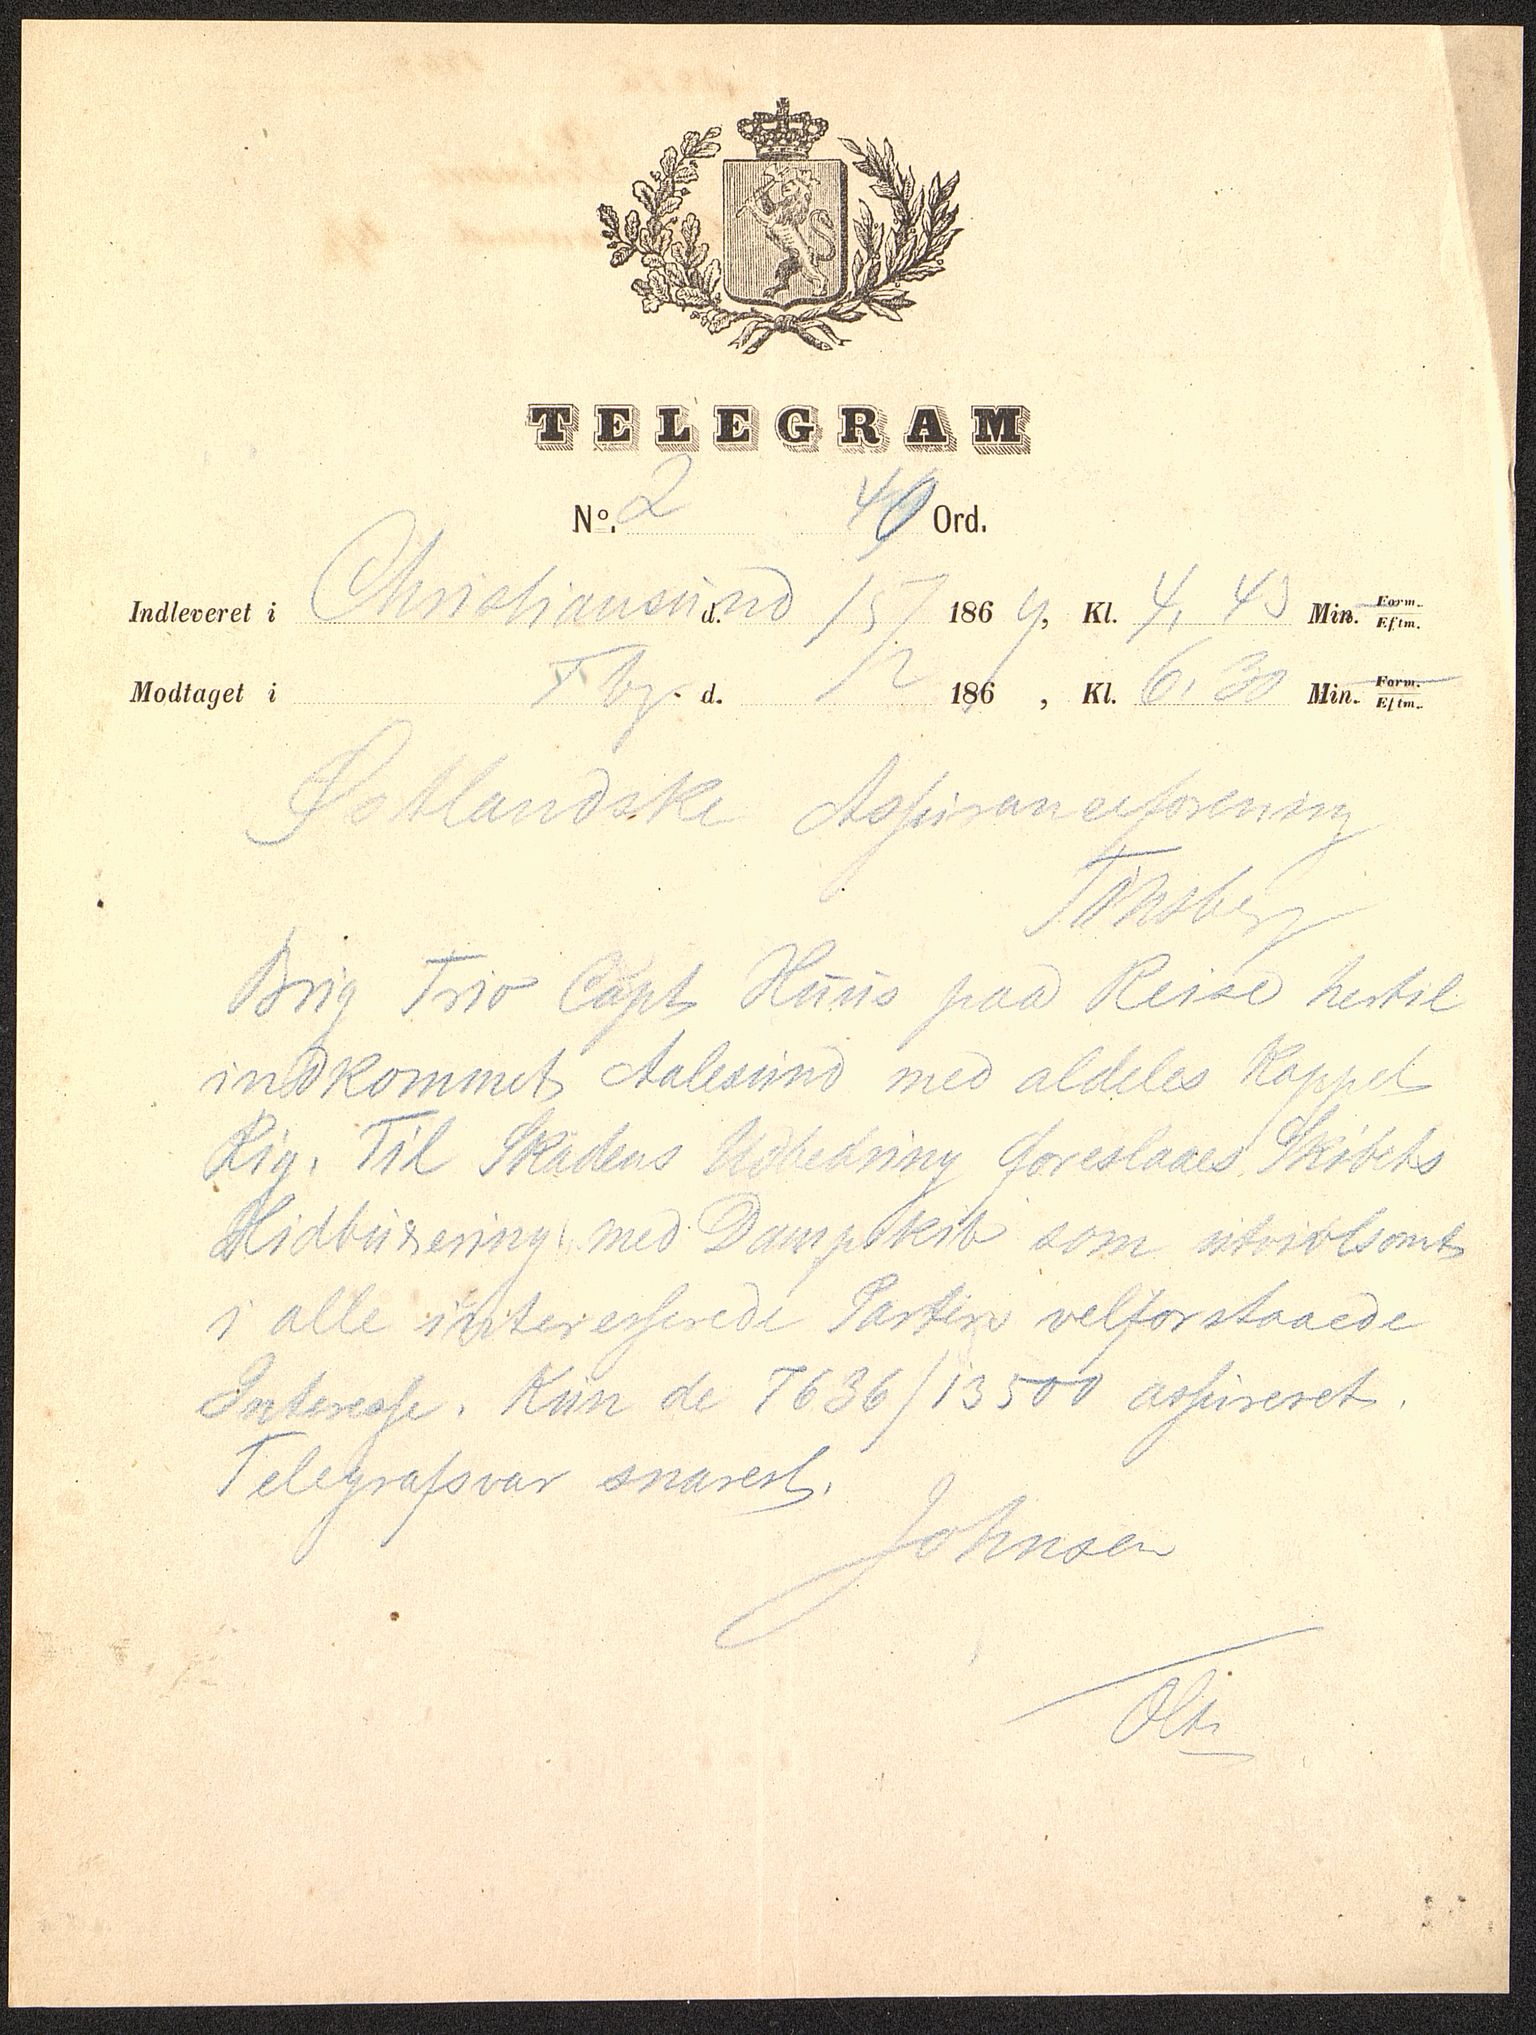 TELEGRAM
No. 2 40 Ord.
Indleveret i Christiansund d. 15/ 1869, Kl. 4,43 Min. Form. Eftm.
Modtaget i Tbg. d. /12 186 , Kl. 6,30 Min. Form. Eftm.
Østlandske Assuranceforening
Tönsberg
Brig Trio Capt Huus paa Reise hertil
indkommet Aalesund med aldeles Kappet
Rig. Til Skadens Udbedring foreslaaes Skibets
Hidbuxering med Dampskib som utvivlsomt
i alle interesserede Partier velforstaaede
Interesse. Kun de 7636/13500 assureret.
Telegrafsvar snarest.
Johnsen